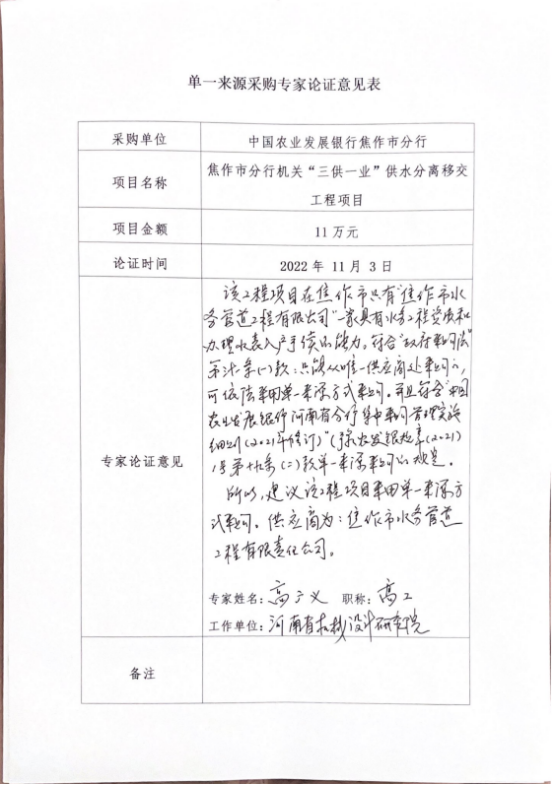 单一来源采购专家论证意见表
采购单位
中国农业发展银行焦作市分行
项目名称
焦作市分行机关“三供一业”供水分离移交
工程项目
项目金额
11万元
论证时间
2022 年 11 月 3 日
专家论证意见
该工程项目在焦作市只有“焦作市水
务管道工程有限公司”一家具有水务工程资质和
办理水表入户手续的能力。符合“政府采购法”
第三十一条(一)款:只能从唯一供应商处采购的,
可依法采用单一来源方式采购。并且符合“中国
农业发展银行河南省分行集中采购管理实施
细则(2021年修订)”(豫农发银规章(2021)
1号第十九条(二)款单一来源采购的规定。
所以,建议该工程项目采用单一来源方
式采购。供应商为:焦作市水务管道
工程有限责任公司。
专家姓名:高广义 职称:高工
工作单位:河南省机械设计研究院
备注